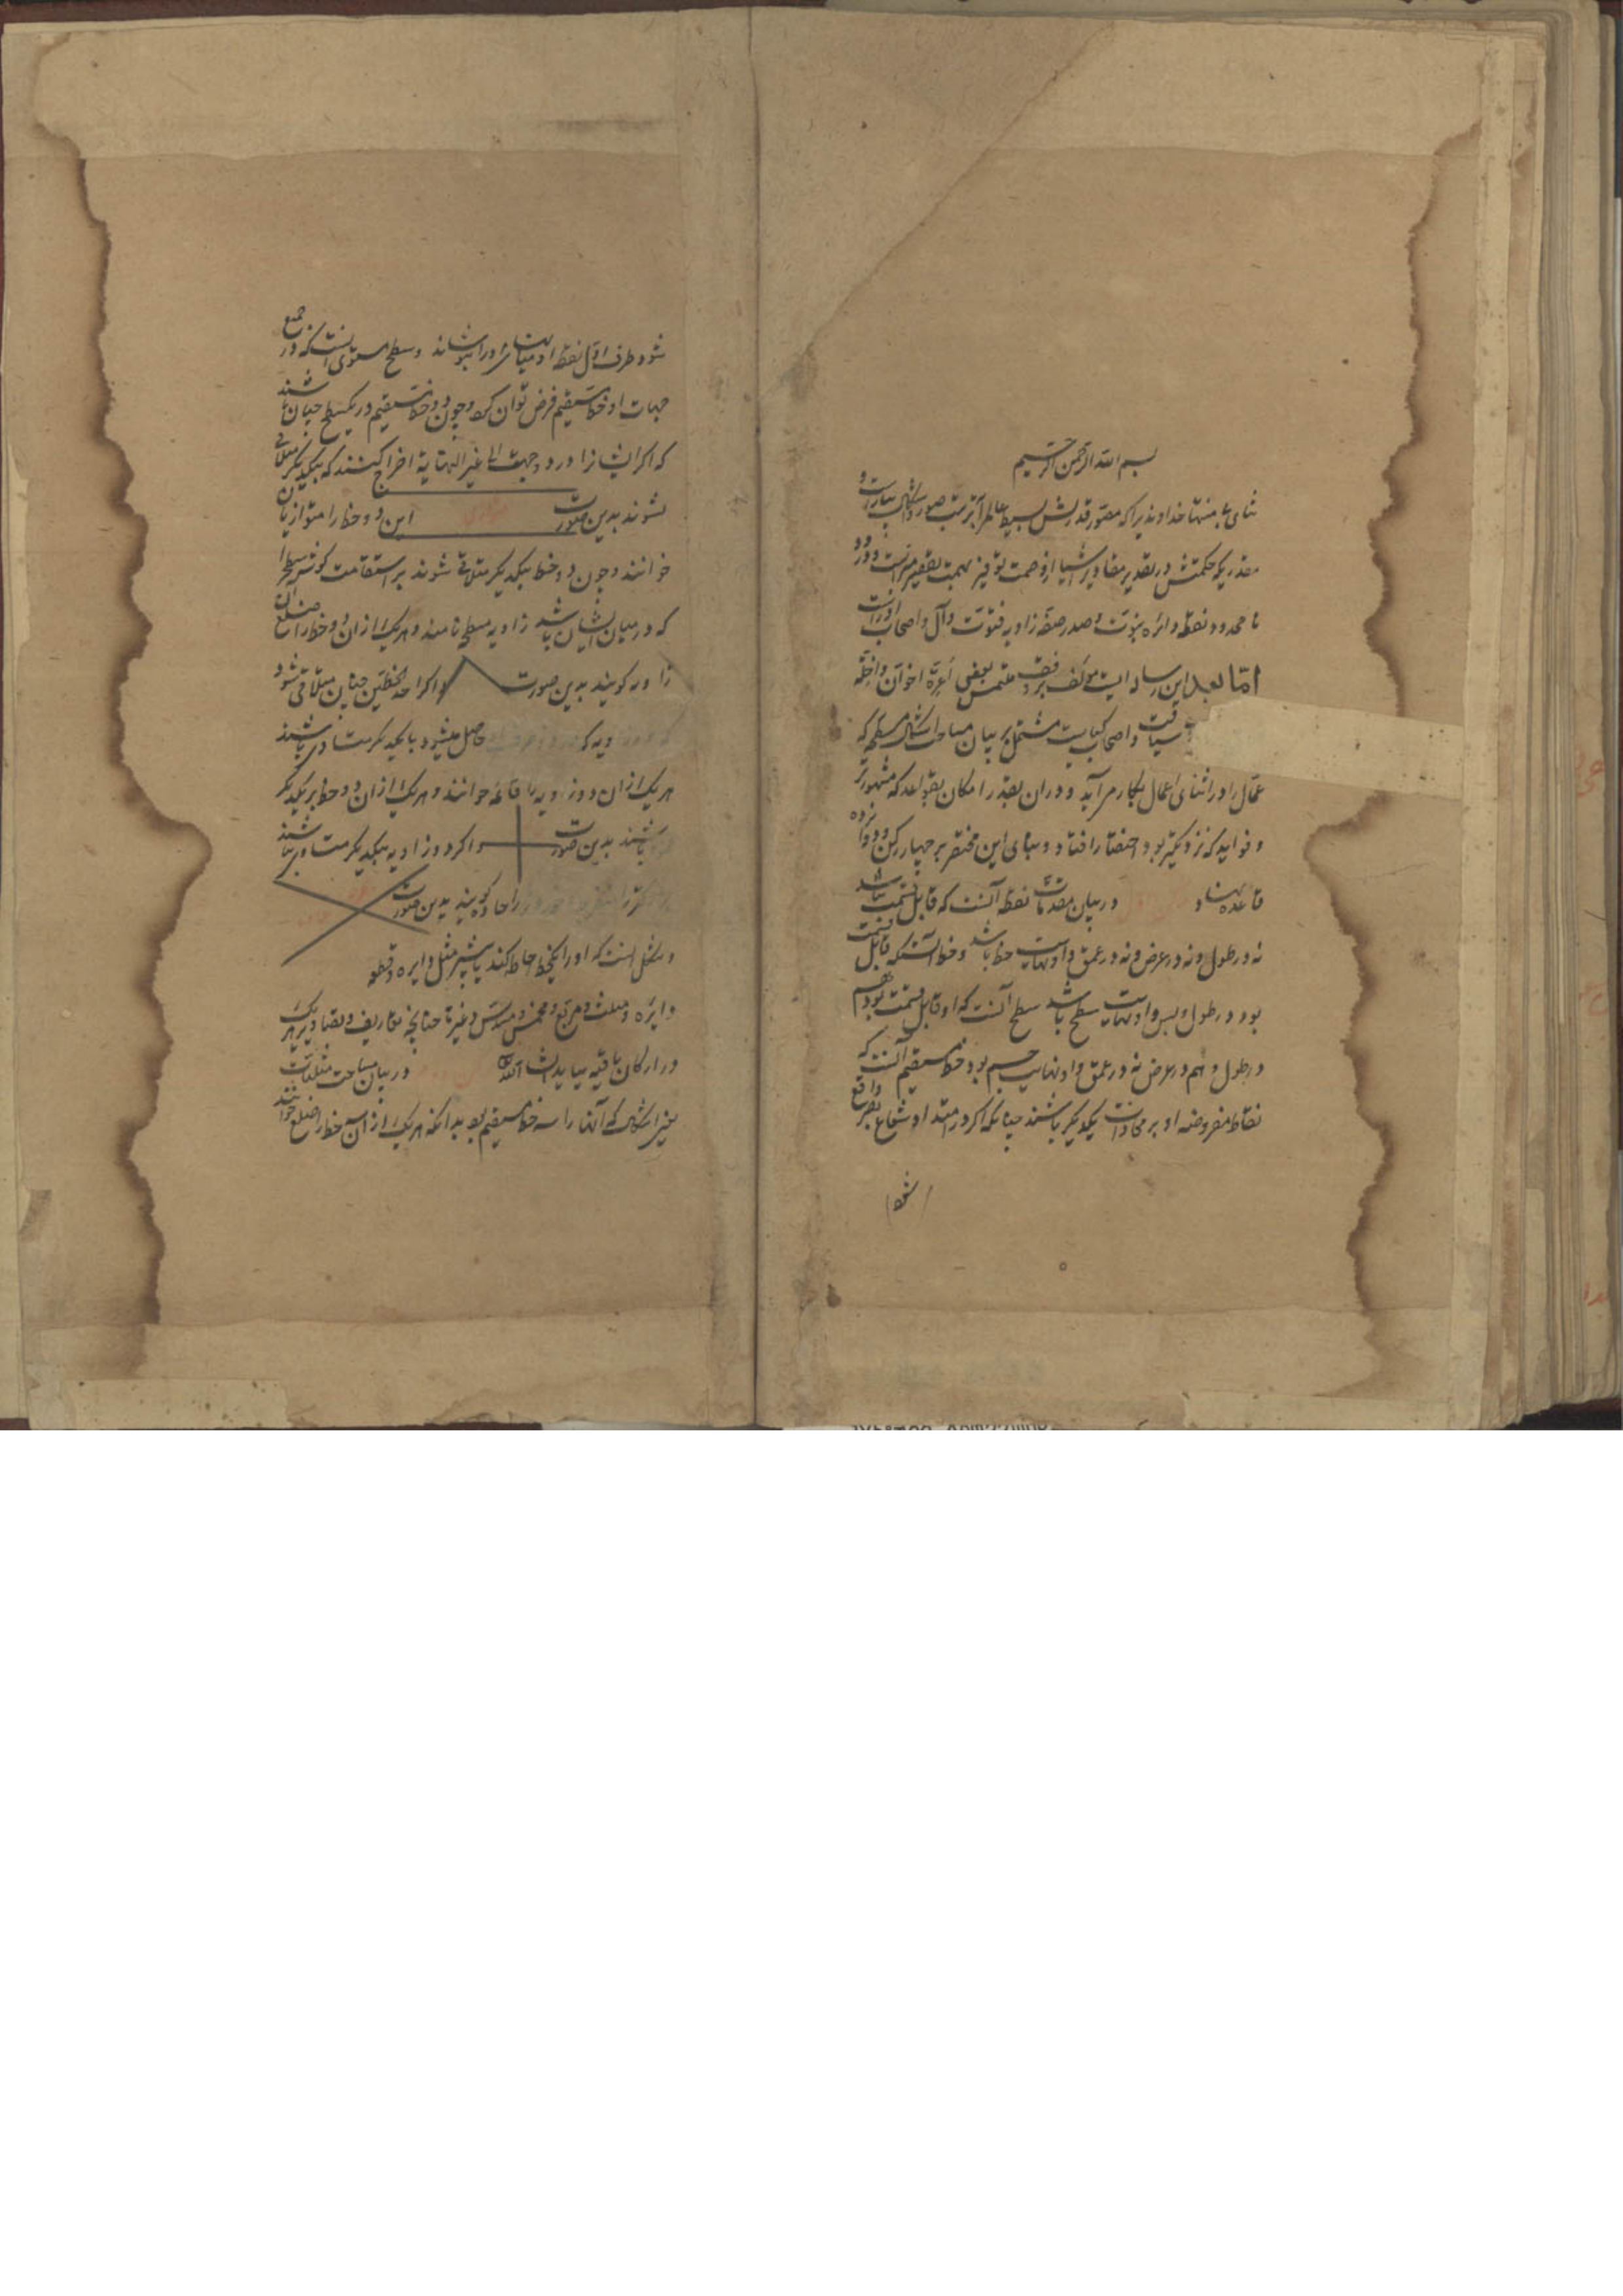 بسم الله الرحمن الرحیم
ثنای بی منتها خداوندیرا که مصور قدرتش بسیط عالم را بترتیب صور و اشکال بیاراست و
مقدریکه حکمتش در تقدیر مقادیر اشیا از وصمت توفیر تهمت تقصیر مبراست و درود
نا محدود نقطه دائره نبوت و صدر صفه زاویه فتوت و آل و اصحاب او راست
اما بعد این رساله ایست مؤلف بر ملتمس بعضی اعزه اخوان و اجله
سیاقت و اصحاب کتابت مشتمل بر بیان مساحت اشکال مسطحه که
عمال را در اثنای اعمال بکار می آید و در آن بقدر امکان بقواعد که مشهورتر
و فواید که نزدیکتر بود اختصار افتاد و مبنای این مختصر بر چهار رکن و دوازده
قاعده نهاد در بیان مقدمات نقطه آنست که قابل قسمت نباشد
نه در طول و نه در عرض و نه در عمق و او نهایت خط باشد و خط آنستکه قابل قسمت
بود در طول و بس و او نهایت سطح باشد سطح آنست که او قابل قسمت بود هم
در طول و هم در عرض نه در عمق و او نهایت جسم بود خط مستقیم آنست که
نقاط مفروضه او بر محاذات یکدیگر باشند چنانکه اگر در امتداد شعاع بصر واقع
شود
شود طرف اول نقطه او میانهت را بپوشاند و سطح مستوی آنست که در جمیع
جهات او خط مستقیم فرض توان کرد و چون دو خط مستقیم در یک سطح چنان باشند
که اگر ایشانرا در دو جهت الی غیر النهایة اخراج کنند که بیکدیگر متلاقی
نشوند بدین صورت این دو خط را متوازیان
خوانند و چون دو خط بیکدیگر متلاقی شوند بر استقامت گوشه سطح را
که در میان ایشان باشد زاویه مسطحه نامند و هر یک از آن دو خط را ضلع آن
زاویه گویند بدین صورت و اگر احد الخطین چنان متلاقی شود
حاصل میشود با یکدیگر مساوی باشند
هر یک از آن دو زاویه را قائمه خوانند و هر یک از آن دو خط بر یکدیگر
باشند بدین صورت و اگر دو زاویه بیکدیگر مساوی نباشند
را حاده گویند بدین صورت
و شکل آنست که او را یکخط احاطه کند یا بیشتر مثل دایره و قطعه
دایره و مثلث و مربع و مخمس و مسدس و غیرها چنانچه تعاریف و تصاویر هر یک
در ارکان باقیه بیاید انشاء الله در بیان مساحت مثلثات
یعنی اشکالی که آنها را سه خط مستقیم بود بدانکه هر یک از آن سه خط را ضلع خوانند